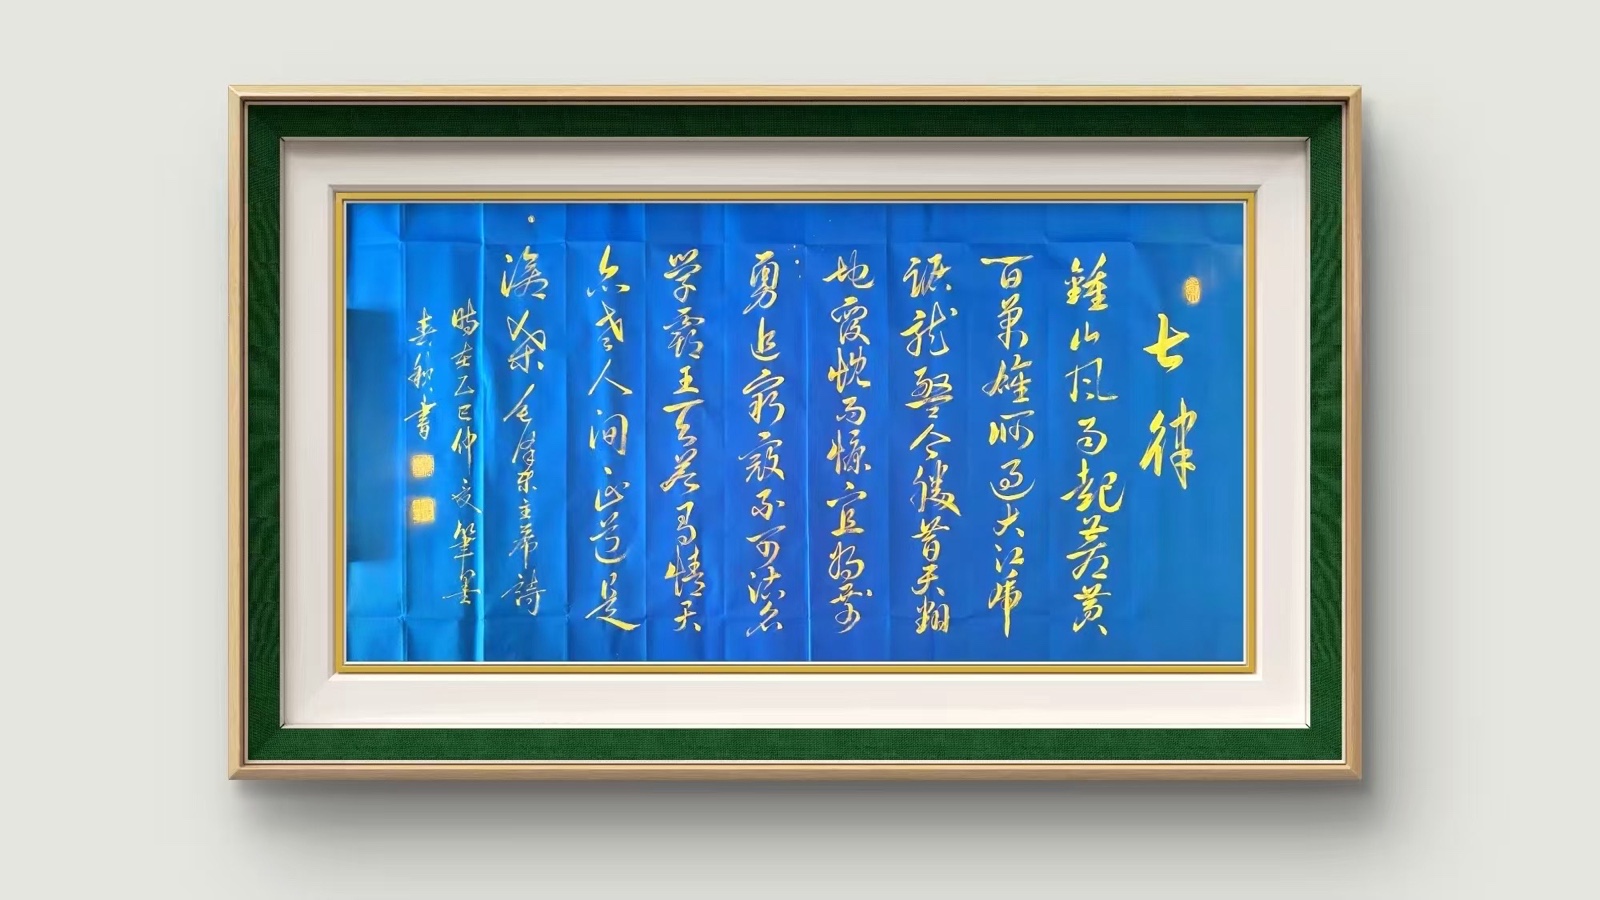 七律
鍾山风雨起蒼黄
百萬雄师過大江虎
踞龙盤今勝昔天翻
地覆慨而慷宜将剩
勇追窮寇不可沽名
学霸王天若有情天
亦老人间正道是
滄桑毛澤东主席詩
時在乙巳仲夏筆墨
春秋書